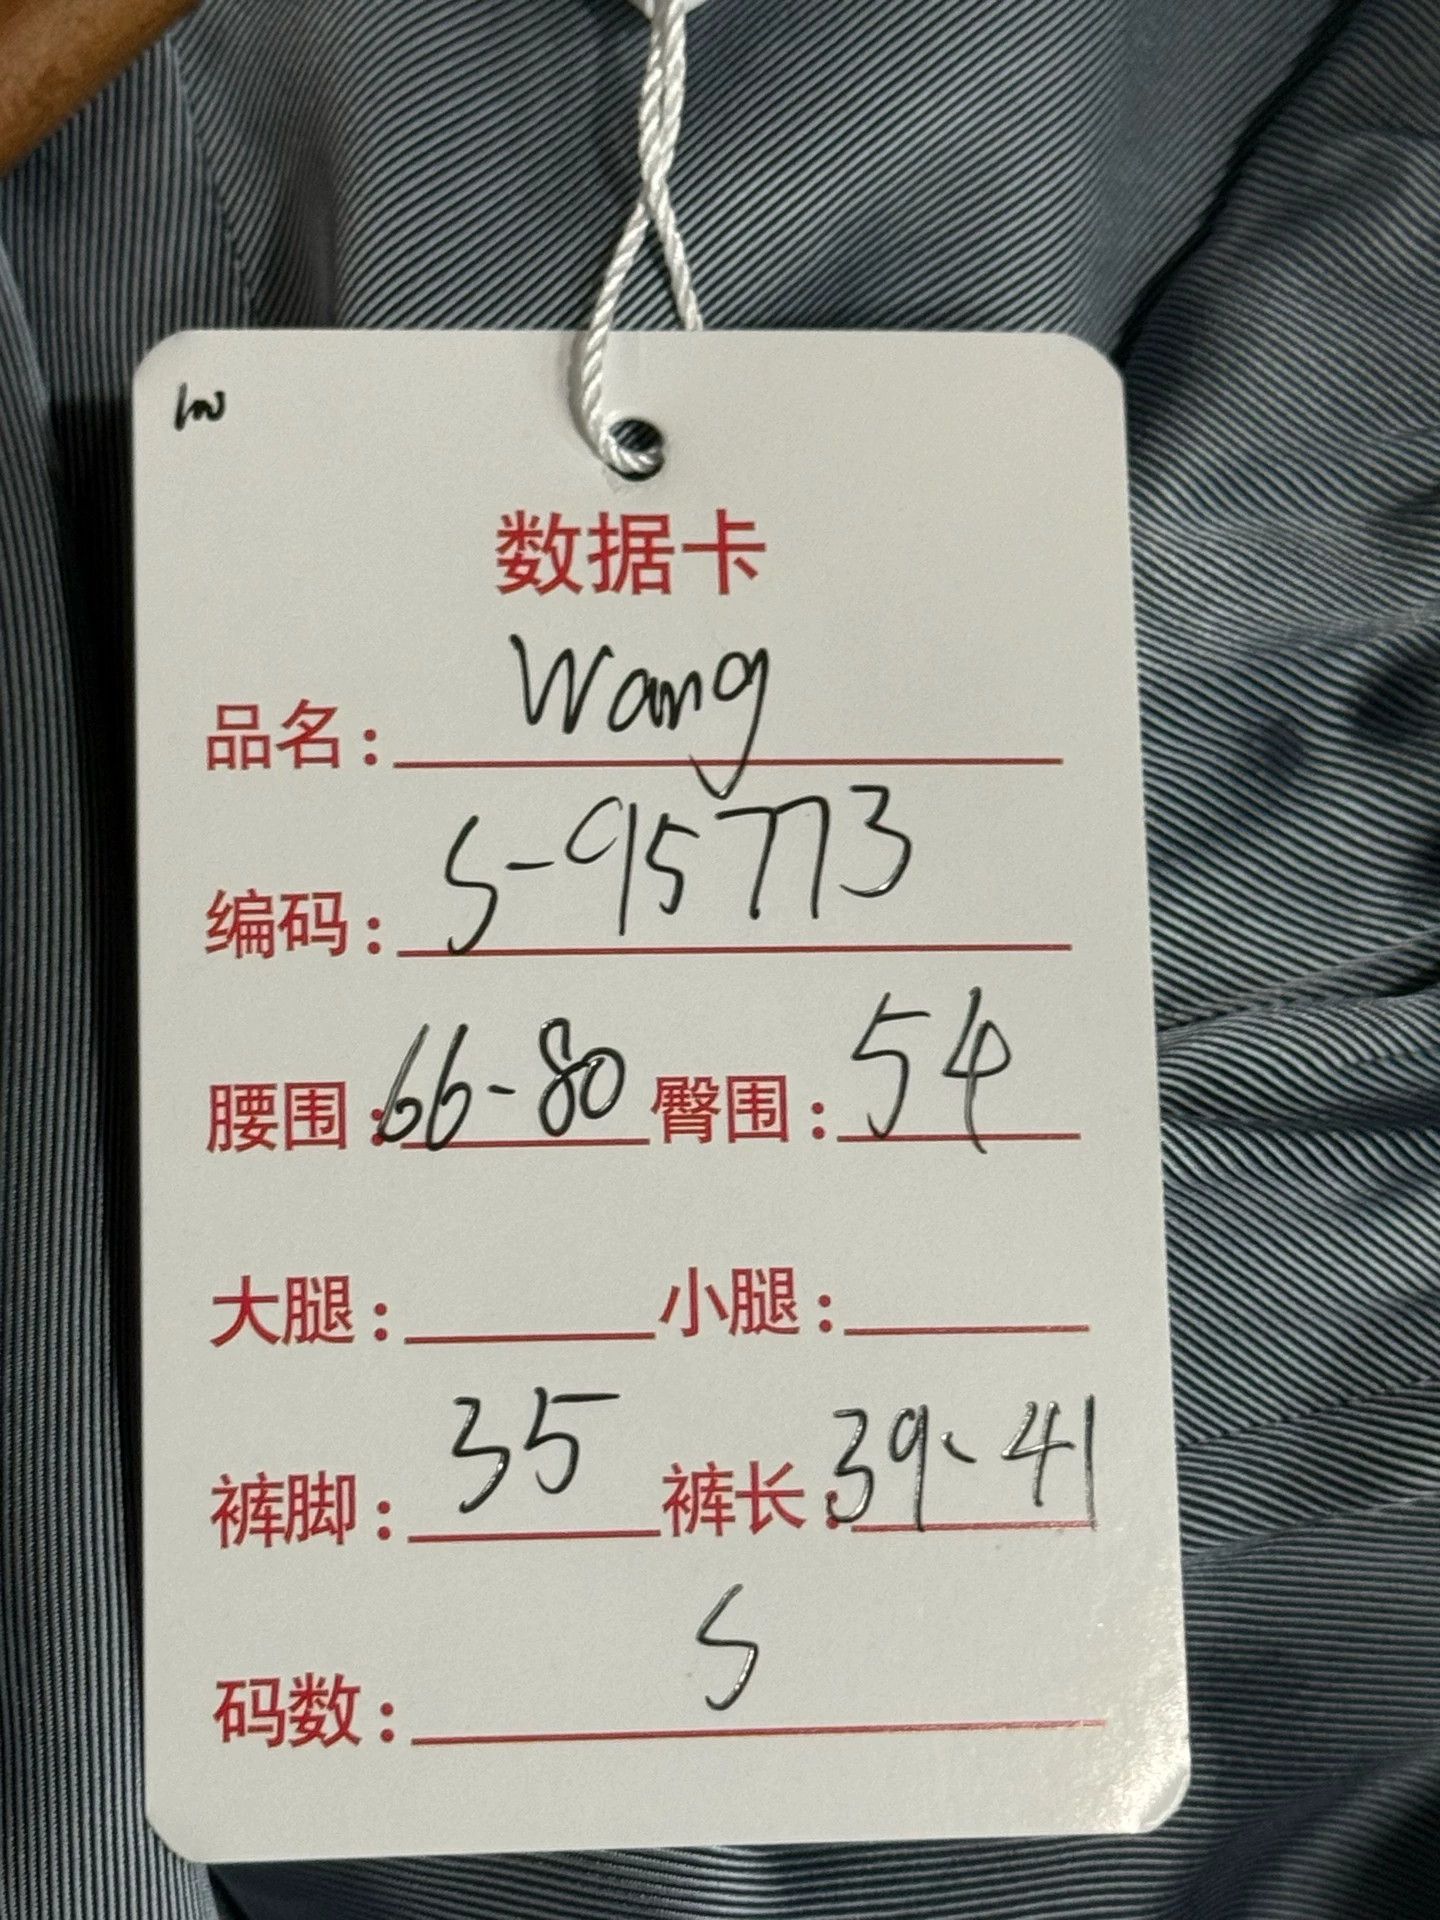 数据卡
品名: Wang
编码: S-95773
腰围: 66-80 臀围: 54
大腿: 小腿:
裤脚: 35 裤长: 39-41
码数: S